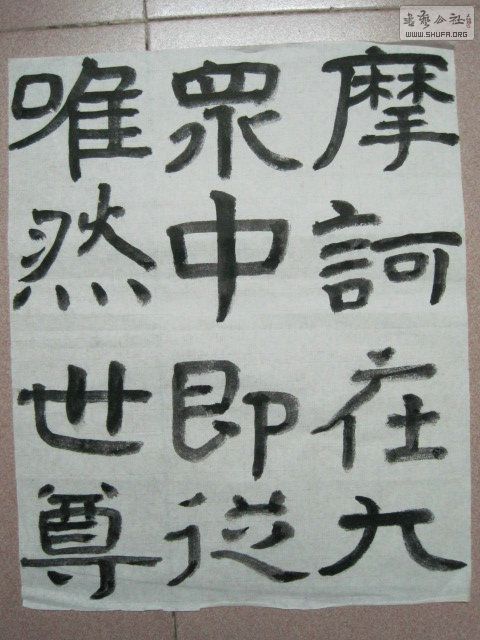 摩訶在大
衆中即從
唯然世尊
書藝公社
WWW.SHUFA.ORG